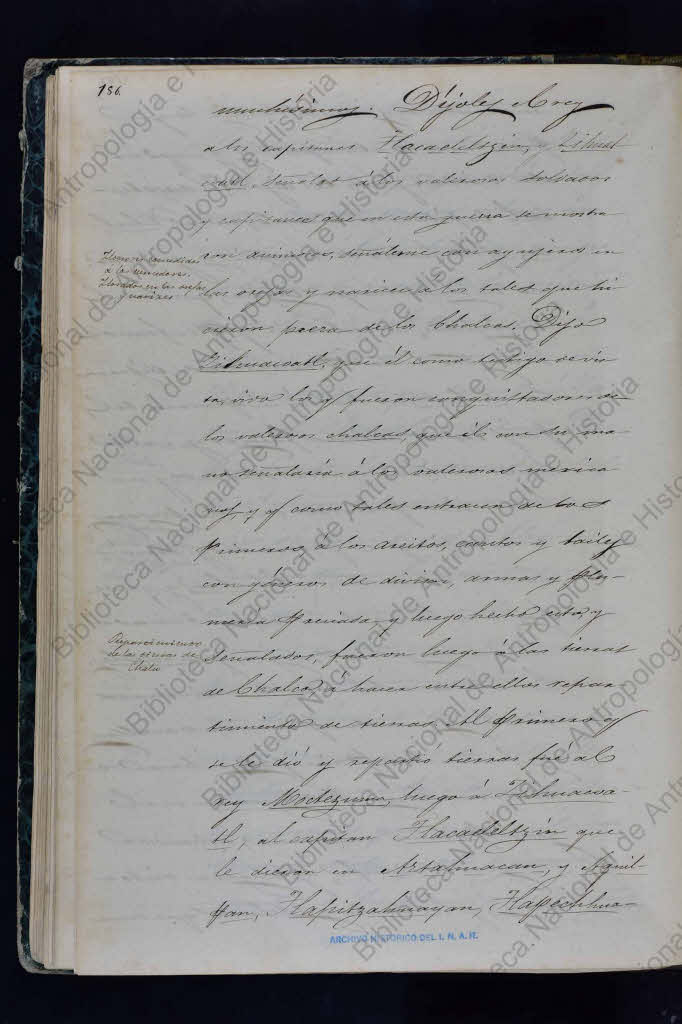 186.
muchísimos. Díjoles el rey
a los capitanes Tlacaeleltzin, y Zihuac
coatl, señalad á los valerosos soldados
y capitanes que en esta guerra se mostra
ron animosos, señálense con agujeros en
las orejas y narices á los tales que hi
cieron presa de los Chalcas. Dijo
Zihuacoatl, que él como testigo de vis
ta, vido los q fueron conquistadores de
los valerosos chalcas, que él con su ma
no señalaría á los valerosos mexica
nos, y q como tales entraran de los
primeros á los areitos, cantos y bailes
con géneros de divisas, armas y plu-
mería preciada, y luego hecho esto, y
señalados, fueron luego á las tierras
de Chalco, á hacer entre ellos repar
timiento de tierras. Al primero q
se le dió y repartió tierras fué al
rey Moctezuma, luego á Zihuacoa-
tl, al capitan Tlacaeleltzin que
le dieron en Aztahuacan, y Aquil-
pan, Tlapitzahuayan, Tlapechhua-
Honores concedidos
a los vencedores.
Horadados en las orejas
y narices
Repartimiento
de las tierras de
Chalco
ARCHIVO HISTORICO DEL I. N. A. H.
Biblioteca Nacional de Antropología e Historia